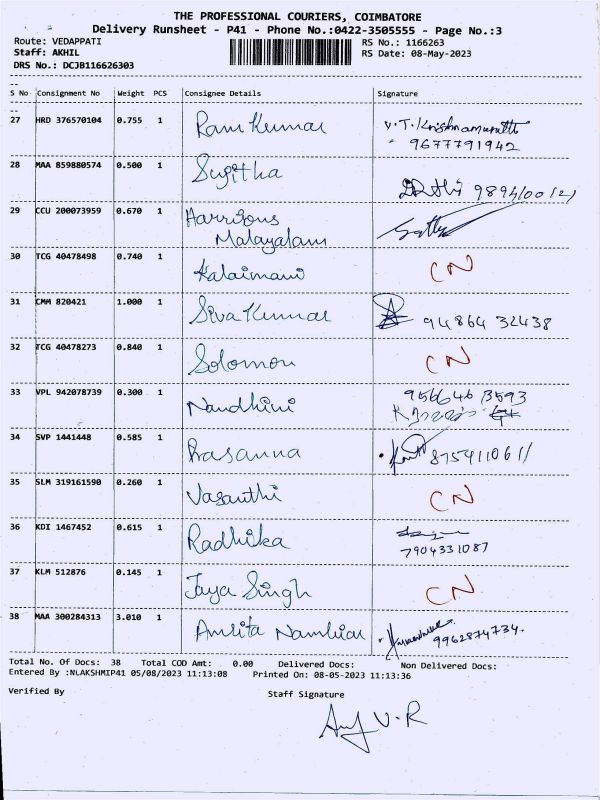 THE PROFESSIONAL COURIERS, COIMBATORE
Delivery Runsheet - P41 - Phone No.:0422-3505555 - Page No.:3
Route: VEDAPPATI
Staff: AKHIL
DRS No.: DCJB116626303
RS No.: 1166263
RS Date: 08-May-2023
S No Consignment No Weight PCS Consignee Details Signature
27 HRD 376570104 0.755 1 Ram Kumar V.T. Krishnamurthi
9677791942
28 MAA 859880574 0.500 1 Sugitha
29 CCU 200073959 0.670 1 Harrisons
Malayalam
30 TCG 40478498 0.740 1 Kalaimani CN
31 CMM 820421 1.000 1 Siva Kumar 94864 32438
32 TCG 40478273 0.840 1 Solomon CN
33 VPL 942078739 0.300 1 Nandhini
34 SVP 1441448 0.585 1 Prasanna
35 SLM 319161590 0.260 1 Vasanthi CN
36 KDI 1467452 0.615 1 Radhika
7904331087
37 KLM 512876 0.145 1 Jaya Singh CN
38 MAA 300284313 3.010 1 Amrita Nambiar 9962874734.
Total No. Of Docs: 38 Total COD Amt: 0.00 Delivered Docs: Non Delivered Docs:
Entered By :NLAKSHMIP41 05/08/2023 11:13:08 Printed On: 08-05-2023 11:13:36
Verified By Staff Signature
V.R